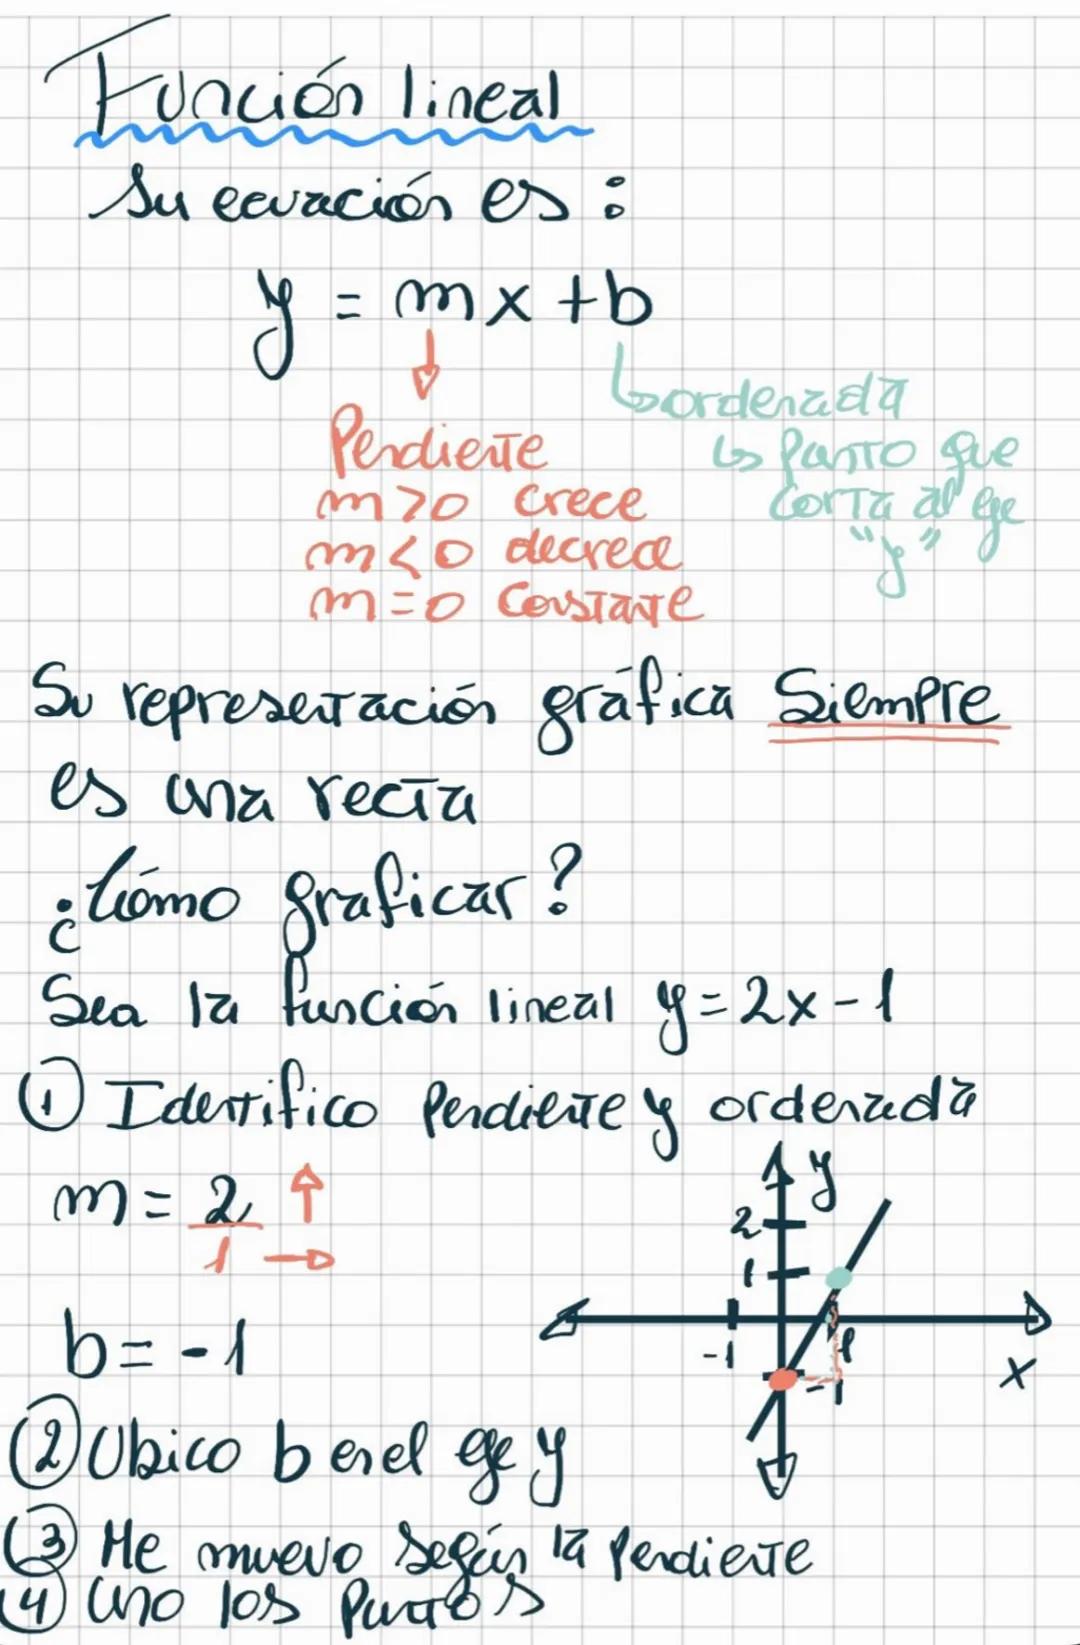 Función lineal
Su ecuación es:
y = mx + b
Pendiente
m > 0 crece
m < 0 decrece
m = 0 constante
ordenada
Punto que
corta al eje
"y"
Su representación gráfica Siempre
es una recta
¿Cómo graficar?
Sea la función lineal y = 2x - 1
① Identifico Pendiente y ordenada
m = 2
1
b = -1
y
2
1
-1
1
-1
x
② Ubico b en el eje y
③ Me muevo según la Pendiente
④ Uno los Puntos